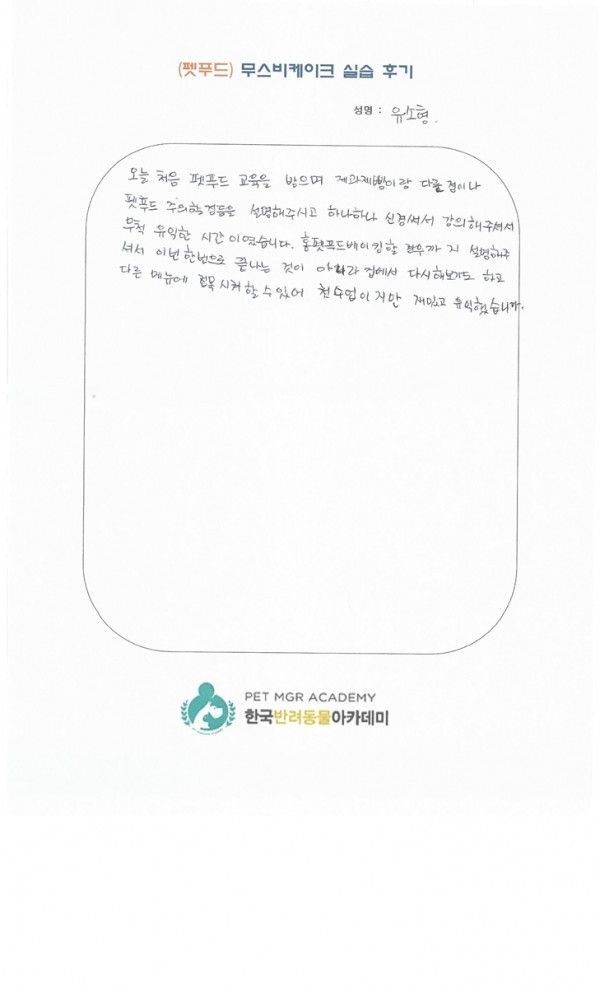 (펫푸드) 무스비케이크 실습 후기
성명 : 유소형.
오늘 처음 펫푸드 교육을 받으며 제과제빵이랑 다른 점이나
펫푸드 주의할점들을 설명해주시고 하나하나 신경써서 강의해주셔서
무척 유익한 시간이였습니다. 홈펫푸드베이킹할 경우까지 설명해주
셔서 이번 한번으로 끝나는 것이 아니라 집에서 다시해보기도 하고
다른 메뉴에 접목시켜할 수 있어 첫수업이지만 재밌고 유익했습니다.
PET MGR ACADEMY
한국반려동물아카데미